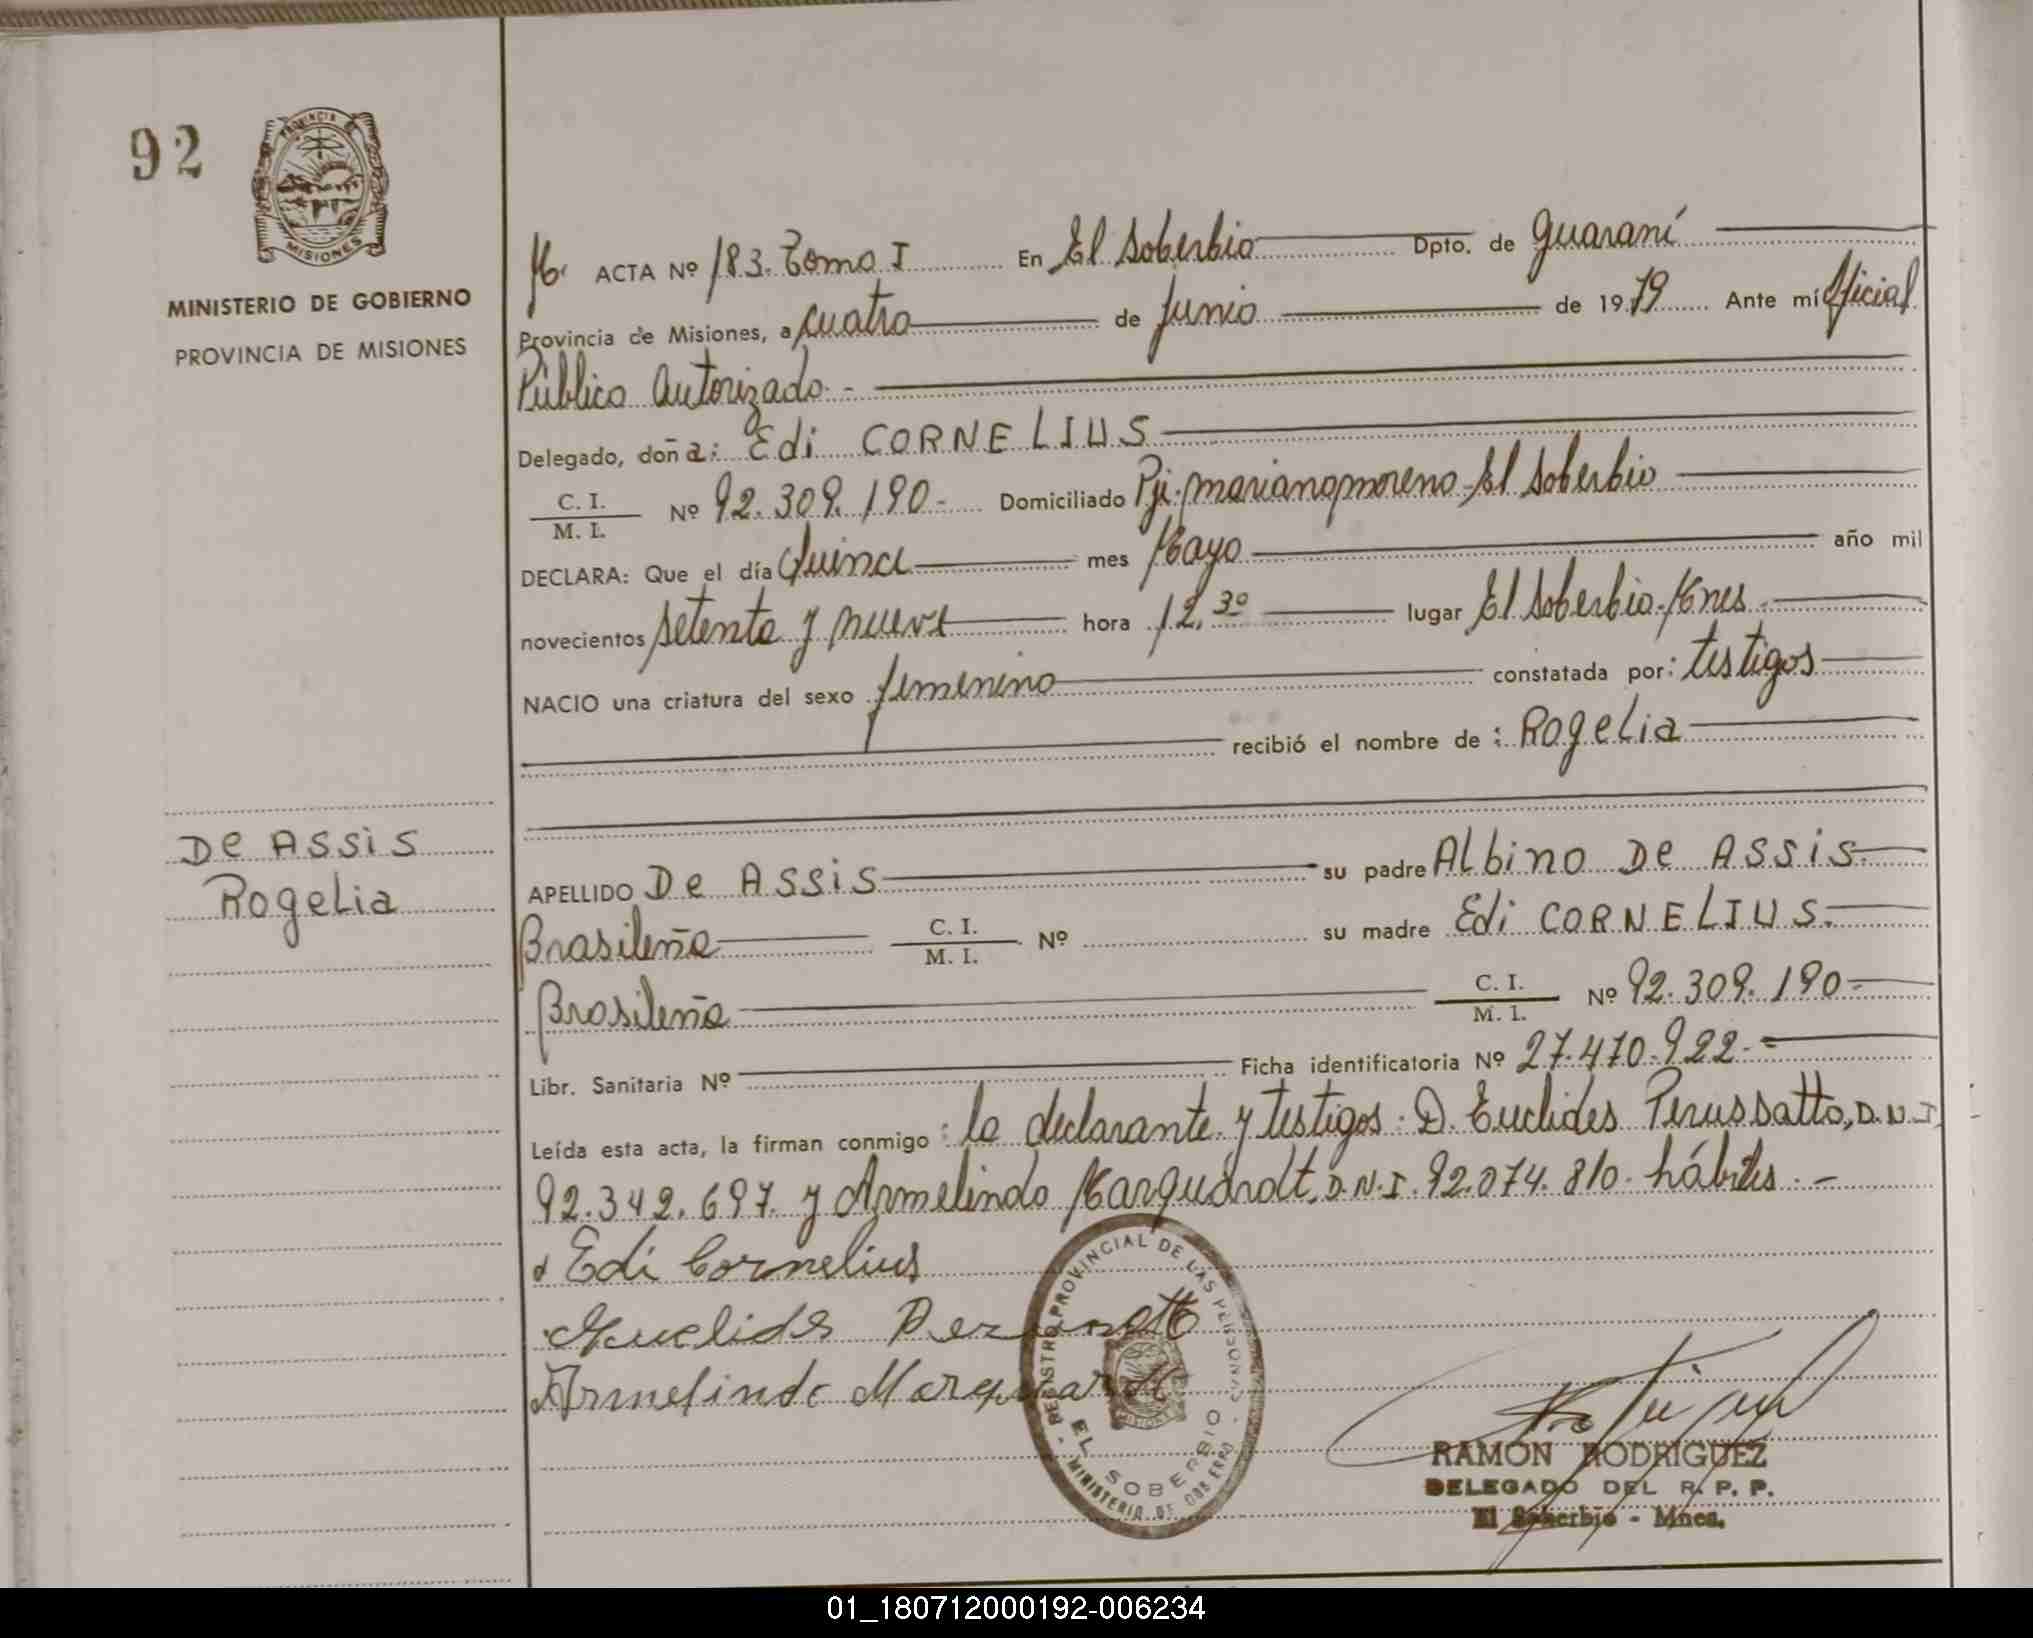 92
PROVINCIA
MISIONES
MINISTERIO DE GOBIERNO
PROVINCIA DE MISIONES
ACTA Nº 183. Tomo I En El Soberbio Dpto. de Guaraní
Provincia de Misiones, a cuatro de Junio de 1979 Ante mí Oficial
Público Autorizado.-
Delegado, doña: Edi CORNELIUS
C. I.
M. I. Nº 92.309.190- Domiciliado Pje. mariano moreno-El Soberbio
DECLARA: Que el día Quince mes Mayo año mil
novecientos setenta y nueve hora 12.30 lugar El Soberbio-Mnes.-
NACIO una criatura del sexo femenino constatada por: testigos
recibió el nombre de: Rogelia
De Assis
Rogelia
APELLIDO De Assis su padre Albino De Assis.
Brasileña C. I.
M. I. Nº su madre Edi CORNELIUS.
Brasileña C. I.
M. I. Nº 92.309.190-
Libr. Sanitaria Nº Ficha identificatoria Nº 27.470.922.-
Leída esta acta, la firman conmigo: la declarante y testigos: D. Euclides Perussatto, D.N.I.
92.342.697. y Armelindo Marquardt, D.N.I. 92.074.810. hábiles.-
Edi Cornelius
Euclides
Armelindo Marquardt
REGISTRO PROVINCIAL DE LAS PERSONAS
EL SOBERBIO
MINISTERIO DE GOBIERNO
MISIONES
RAMON RODRIGUEZ
DELEGADO DEL R. P. P.
El Soberbio - Mnes.
01_180712000192-006234